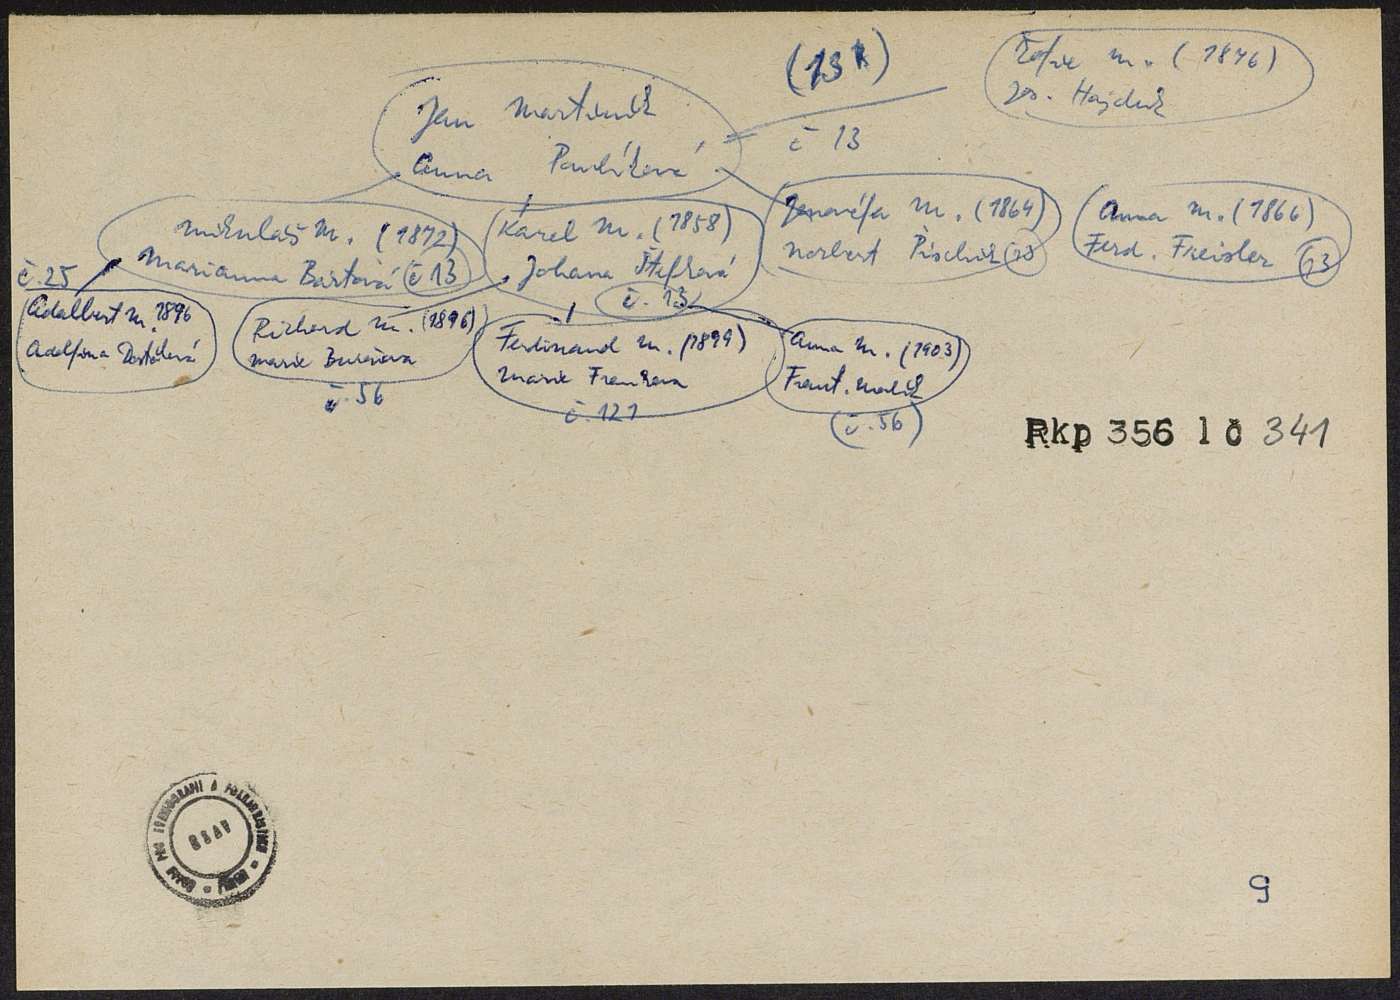 (13k)
Žofie M. (1846)
Jos. Hajduk
Jan Martiník
Anna Pavlíková
č 13
Mikuláš M. (1872)
Marianna Bártová č 13
Karel M. (1858)
Johana Štefková
č. 13
Jenovéfa M. (1864)
Norbert Pischik 13
Anna M. (1866)
Ferd. Freisler 13
č. 25
Adalbert M. 1896
Adolfina Dostálová
Richard M. (1896)
Marie
č. 56
Ferdinand M. (1899)
Marie
č. 121
Anna M. (1903)
Frant. Malík
(č. 56)
Rkp 356 1 č 341
9